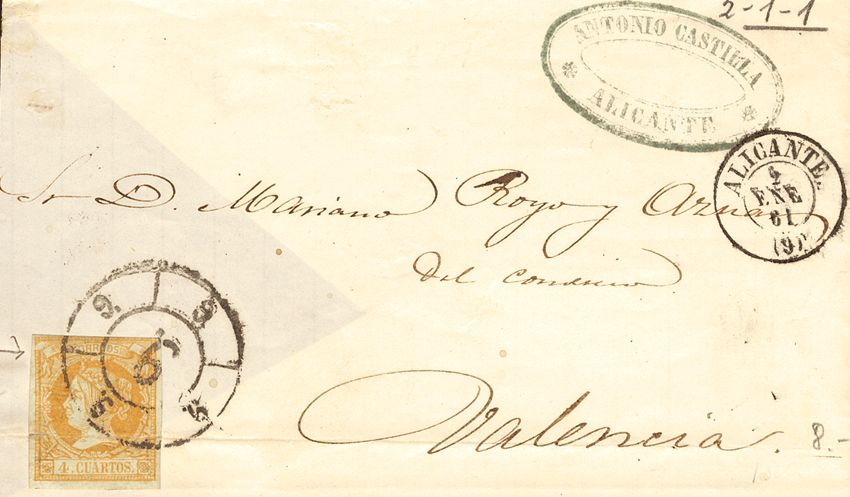 2-1-1
ANTONIO CASTILLA
ALICANTE
ALICANTE.
2
ENE
61
(9)
Sr D. Mariano Royo y Aznar
del comercio
Valencia.
8.-
CORREOS
4. CUARTOS.
9.
9
9.
9.
9